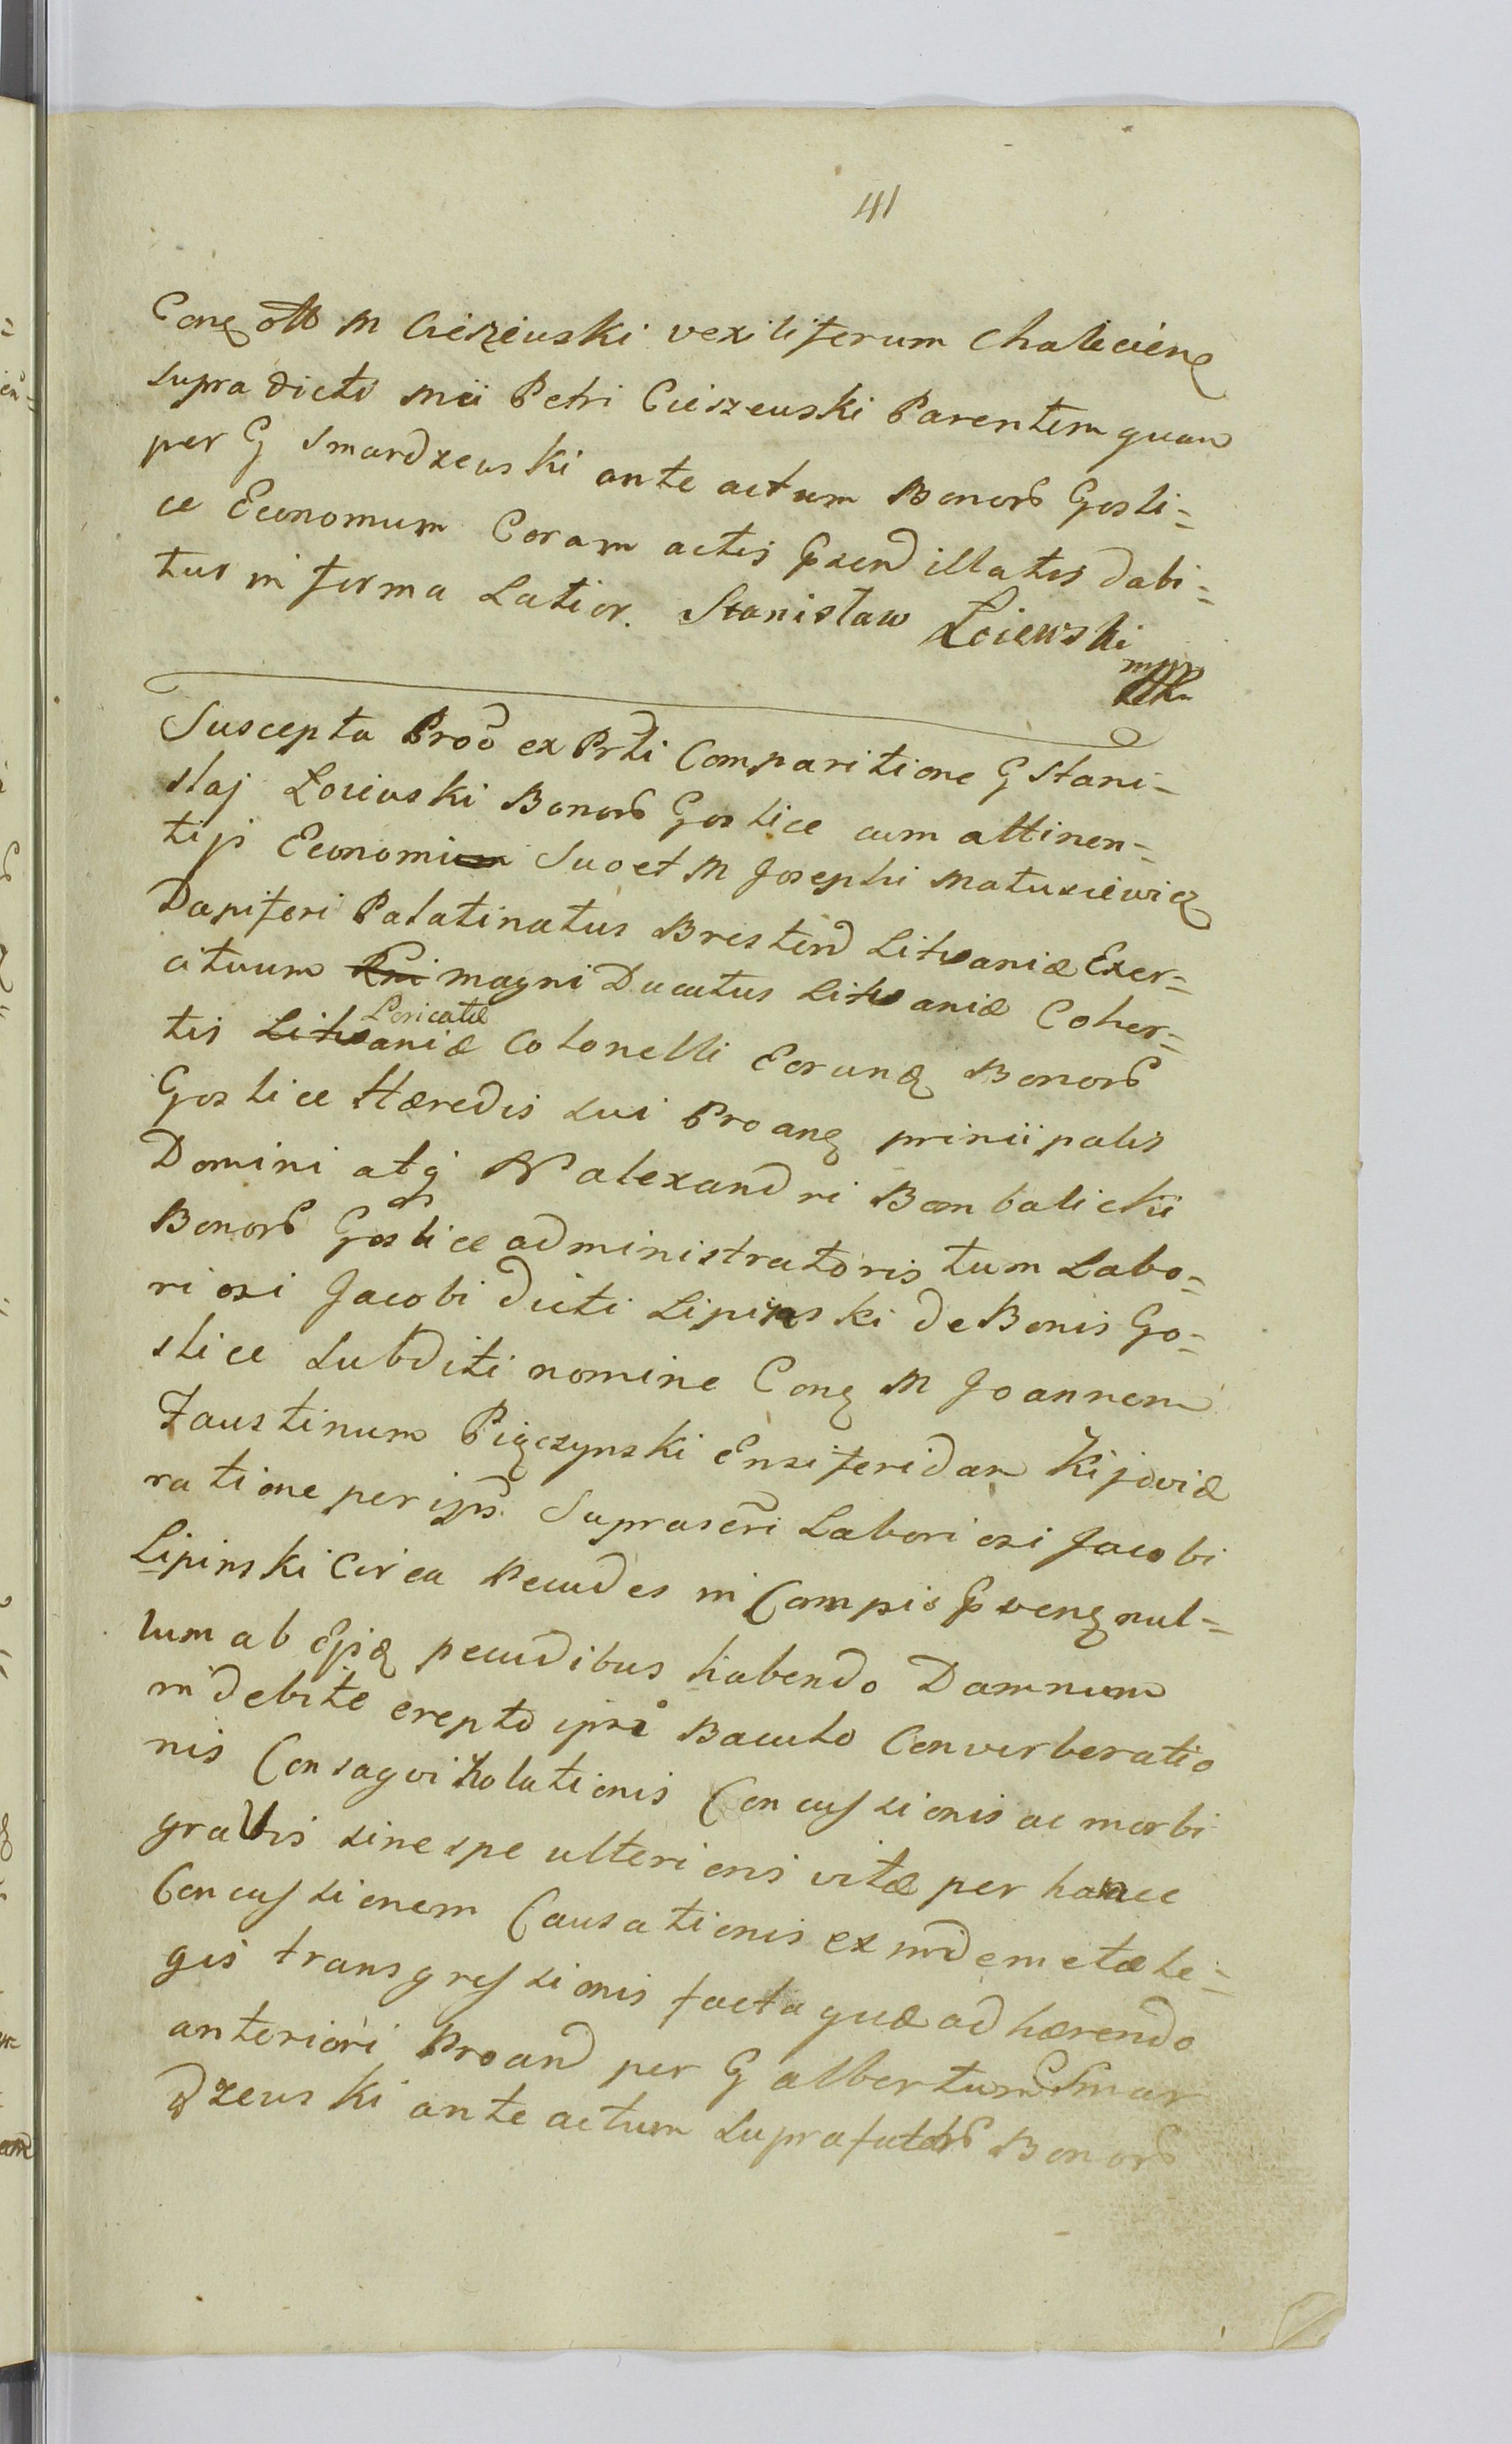 41
Conq̃ Ott M Cieszewski vexiliferum Chalicienȩ
supradicti Mci Petri Cieszewski Parentem quam
per G Smardzewski ante actum Bonorũ Gosli=
ce Economum Coram actis Pxend illatis dabi=
tur in forma Latior. Stanisław Łoiewski
mpp
Suscepta Prod ex Prti Comparitione G Stani-
slaj Łoiewski Bonorũ Goslice cum attinen=
tijs Economi Suo et M Josephi Matusiewicz
Dapiferi Palatinatus Bresten Lithvaniæ Exer=
cituum magni Ducatus Lithvaniæ Cohor=
tis Loricatæ Colonelli Eorunq̃ Bonorũ
Goslice Hæredis sui Proanq̃ principalis
Domini atq̃ N alexandri Bombalickii
Bonorũ Goslice administratoris tum Labo=
riosi Jacobi dicti Lipinski de Bonis Go=
slice Subditi nomine Conq̃ M Joannem
Faustinum Pigczynski Ensiferidam Kijoviæ
ratione per ips. Suprascri Laboriosi Jacobi
Lipinski Circa Pecudes in Campis Pvenq̃ nul=
lum ab Ejsq̃ pecudibus habendo Damnum
indebite erepto ipsi Baculo Converberatio
nis Consagvi#olationis Concussionis ac morbi
gravis sine spe ulterioris vitæ per hance
Concussionem Causationis ex indemetæ Le=
gis transgressionis facta quæ adhærendo
anteriori Proand per G albertum Smar
dzewski ante actum suprafatorũ Bonorũ